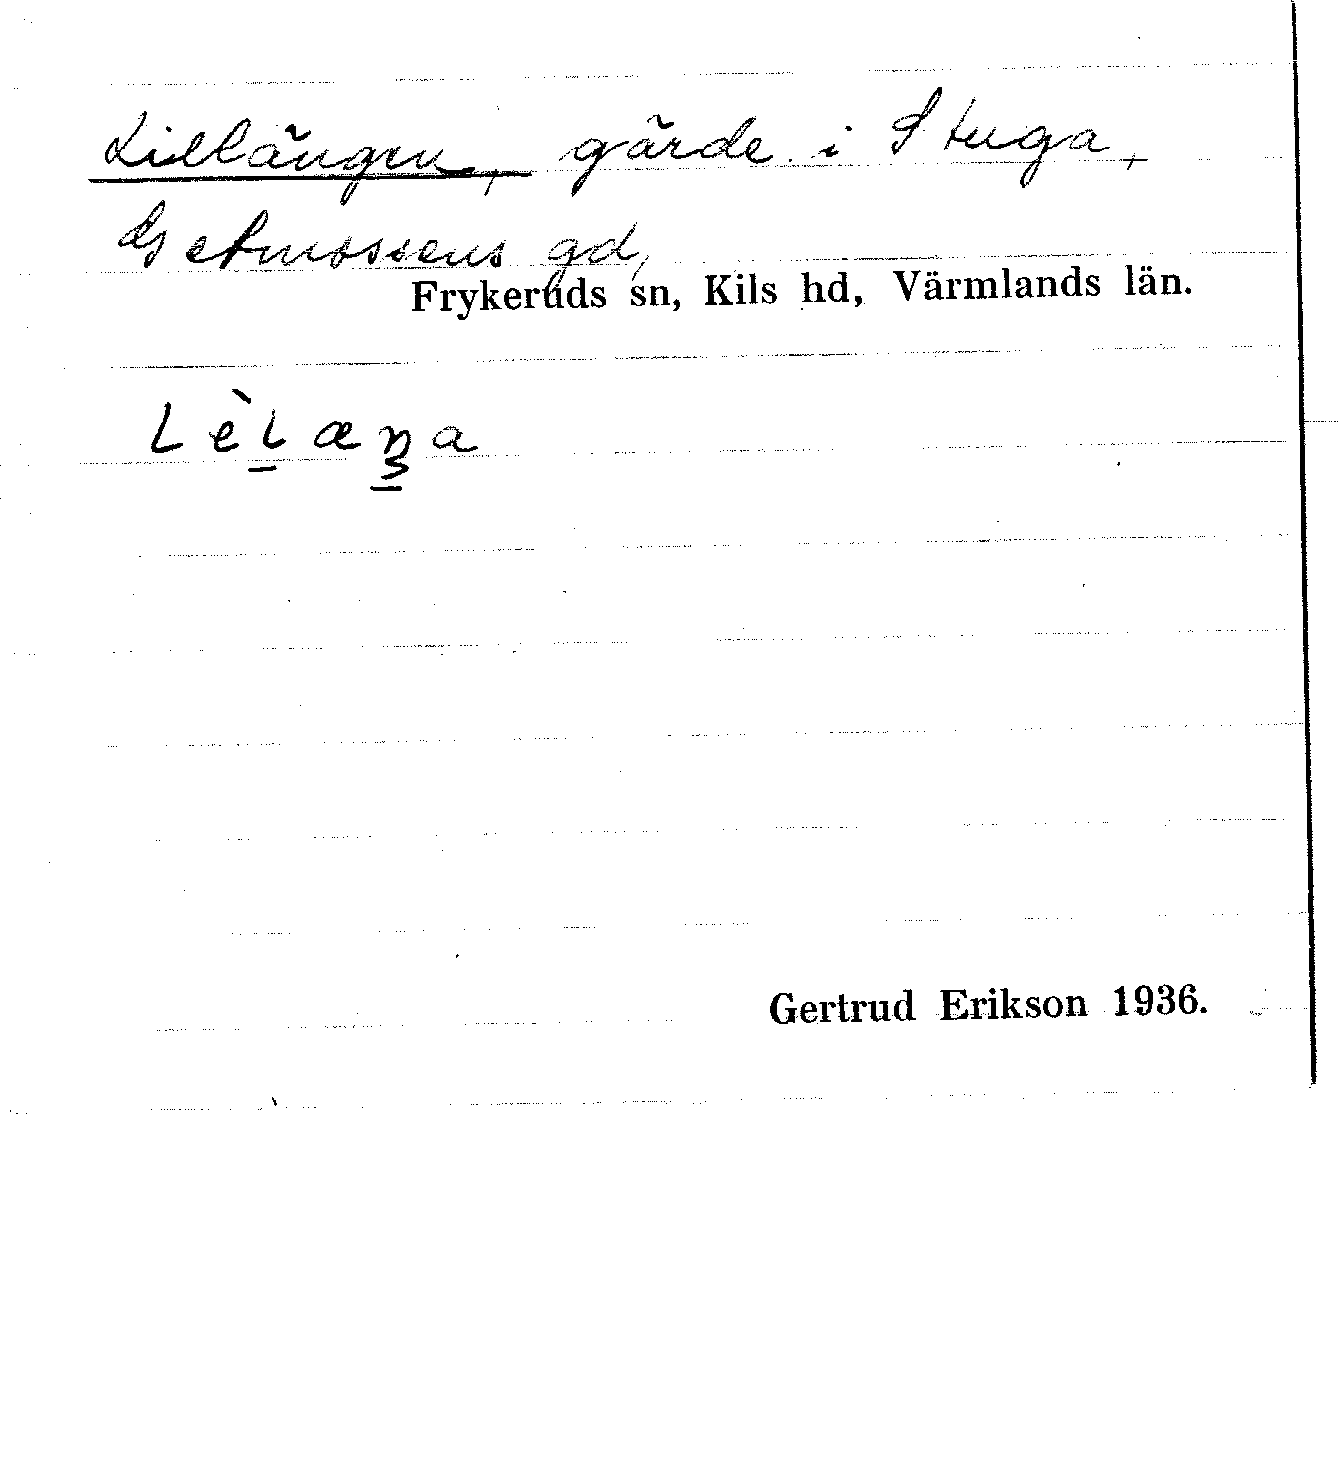 Lillängen, gärde i Stuga,
Getmossens gd,
Frykeruds sn, Kils hd, Värmlands län.
Gertrud Erikson 1936.